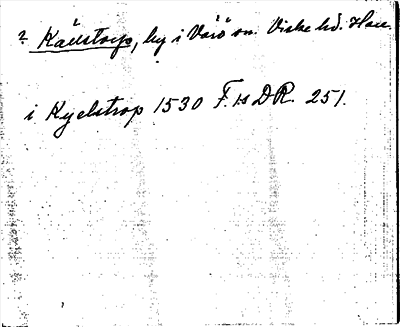 ? Källstorp, by i Värö sn. Viske hd. Hall.
i Kyelstrop 1530 F. 1s DR. 251.